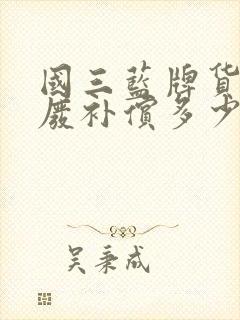 國三藍牌貨
廢补償多少
吴秉成